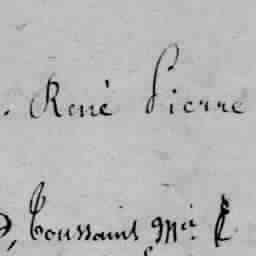 René Pierre
Toussaint Mie